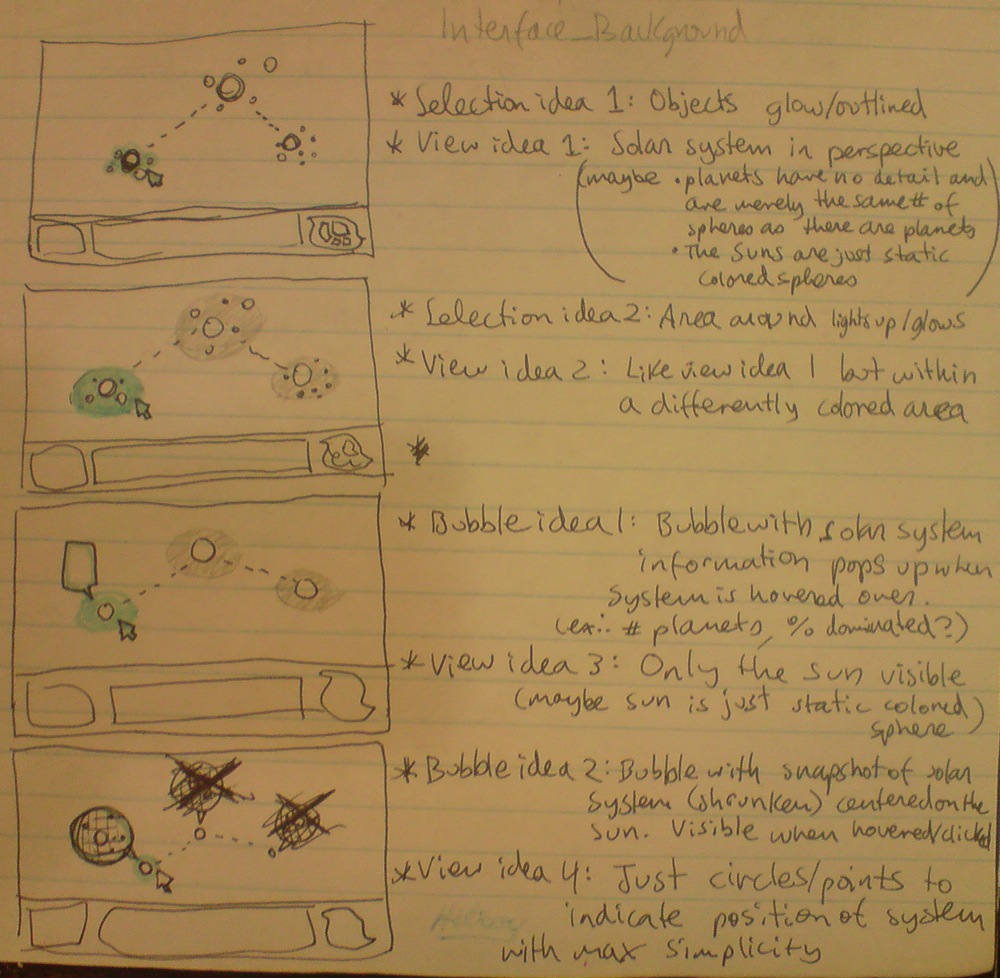 Interface_Background
* Selection idea 1: Objects glow/outlined
* View idea 1: Solar system in perspective
(maybe • planets have no detail and
are merely the same # of
spheres as there are planets
• The Suns are just static
colored spheres)
* Selection idea 2: Area around lights up/glows
* View idea 2: Like view idea 1 but within
a differently colored area
*
* Bubble idea 1: Bubble with solar system
information pops up when
system is hovered over.
(ex:. # planets, % dominated?)
* View idea 3: Only the sun visible
(maybe sun is just static colored)
sphere
* Bubble idea 2: Bubble with snapshot of solar
system (shrunken) centered on the
sun. Visible when hovered/clicked
* View idea 4: Just circles/points to
indicate position of system
with max simplicity